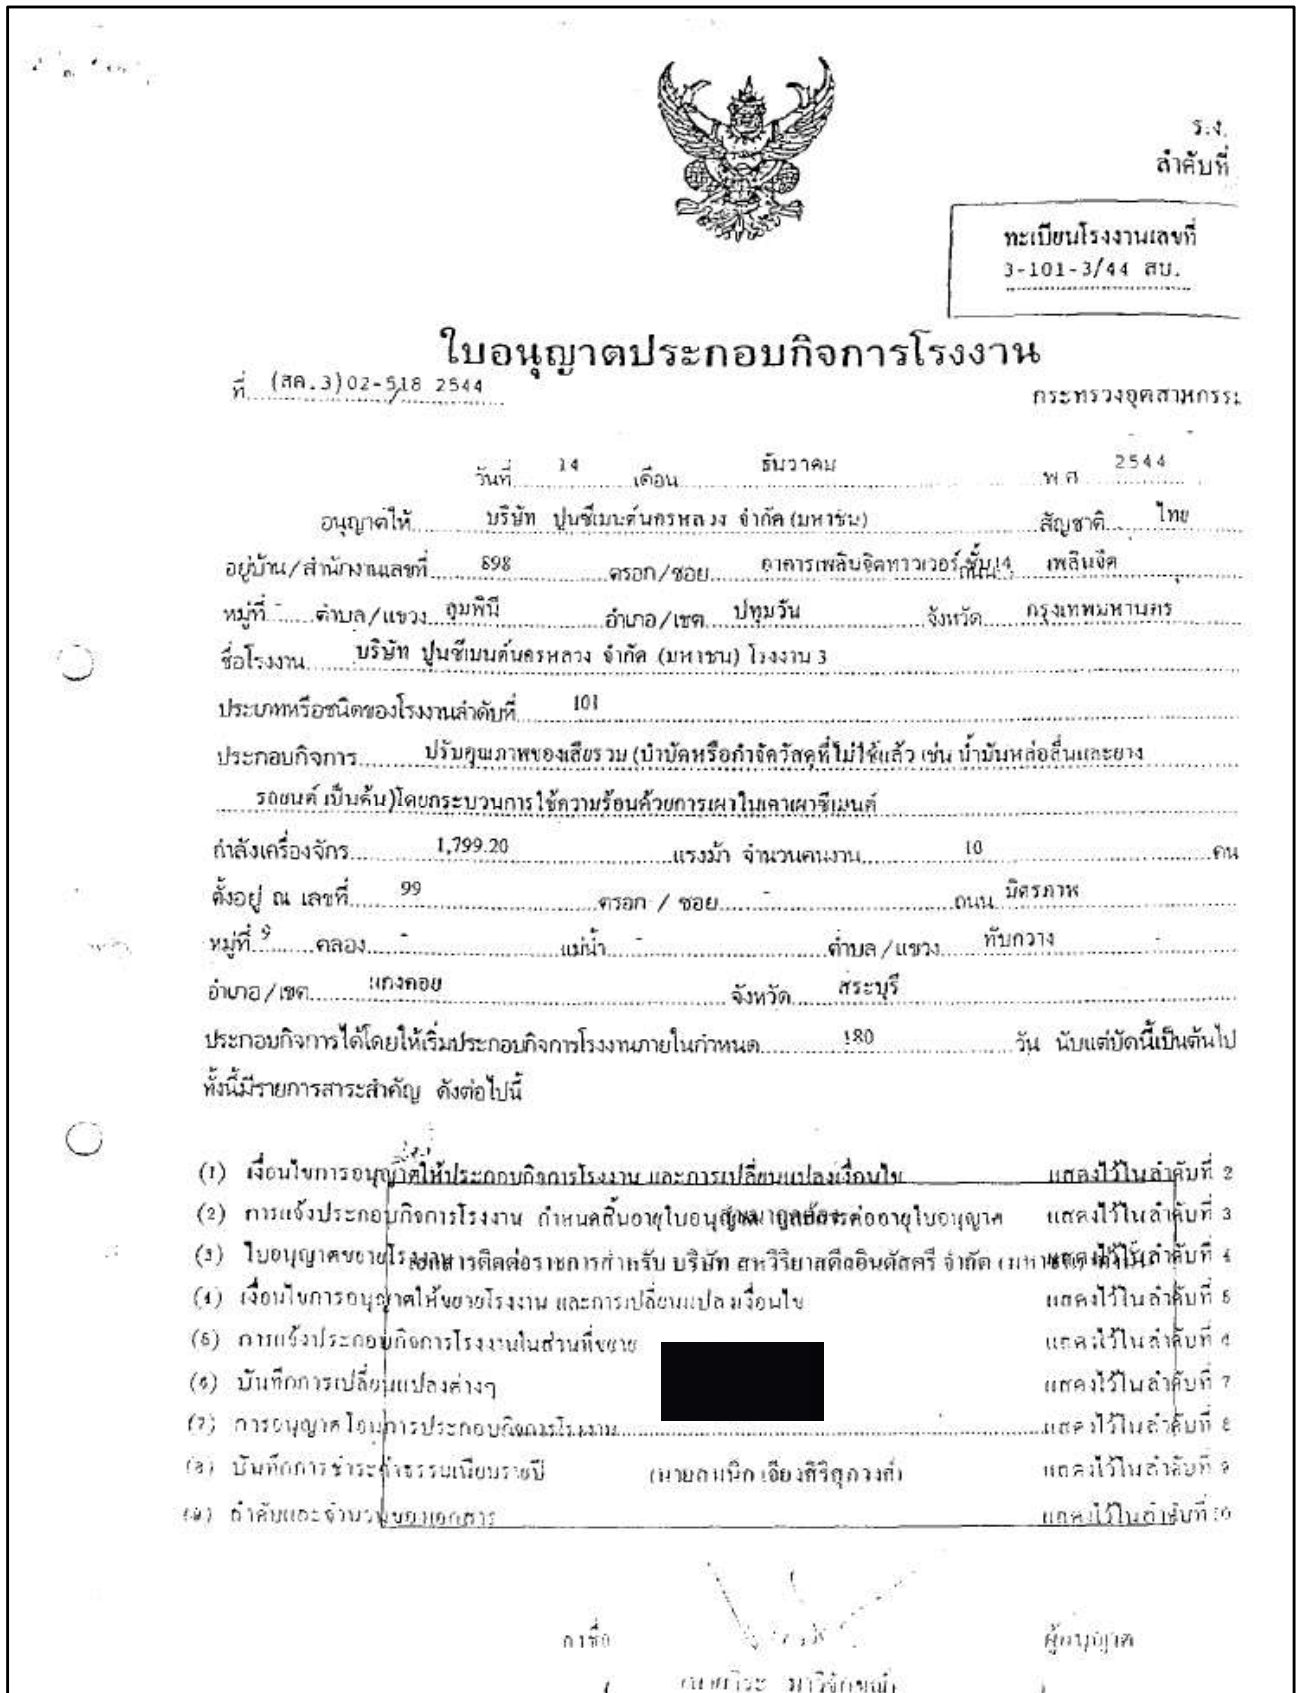 ร.ง.
ลำดับที่
ทะเบียนโรงงานเลขที่
3-101-3/44 สบ.
ใบอนุญาตประกอบกิจการโรงงาน
ที่ (สค.3)02-518/2544
กระทรวงอุตสาหกรร
วันที่ 14 เดือน ธันวาคม พ.ศ 2544
อนุญาตให้ บริษัท ปูนซีเมนต์นครหลวง จำกัด (มหาชน) สัญชาติ ไทย
อยู่บ้าน/สำนักงานเลขที่ 898 ตรอก/ซอย อาคารเพลินจิตทาวเวอร์ ชั้น 14 ถนน เพลินจิต
หมู่ที่ - ตำบล/แขวง ลุมพินี อำเภอ/เขต ปทุมวัน จังหวัด กรุงเทพมหานคร
ชื่อโรงงาน บริษัท ปูนซีเมนต์นครหลวง จำกัด (มหาชน) โรงงาน 3
ประเภทหรือชนิดของโรงงานลำดับที่ 101
ประกอบกิจการ ปรับคุณภาพของเสียรวม (บำบัดหรือกำจัดวัสดุที่ไม่ใช้แล้ว เช่น น้ำมันหล่อลื่นและยาง
รถยนต์ เป็นต้น)โดยกระบวนการใช้ความร้อนด้วยการเผาในเตาเผาซีเมนต์
กำลังเครื่องจักร 1,799.20 แรงม้า จำนวนคนงาน 10 คน
ตั้งอยู่ ณ เลขที่ 99 ตรอก / ซอย - ถนน มิตรภาพ
หมู่ที่ 9 คลอง - แม่น้ำ - ตำบล/แขวง ทับกวาง
อำเภอ/เขต แก่งคอย จังหวัด สระบุรี
ประกอบกิจการได้โดยให้เริ่มประกอบกิจการโรงงานภายในกำหนด 180 วัน นับแต่บัดนี้เป็นต้นไป
ทั้งนี้มีรายการสาระสำคัญ ดังต่อไปนี้
(1) เงื่อนไขการอนุญาตให้ประกอบกิจการโรงงาน และการเปลี่ยนแปลงเงื่อนไข แสดงไว้ในลำดับที่ 2
(2) การแจ้งประกอบกิจการโรงงาน กำหนดสิ้นอายุใบอนุญาต และการต่ออายุใบอนุญาต แสดงไว้ในลำดับที่ 3
(3) ใบอนุญาตขยายโรงงาน แสดงไว้ในลำดับที่ 4
เอกสารติดต่อราชการสำหรับ บริษัท สหวิริยาสตีลอินดัสตรี จำกัด (มหาชน) เท่านั้น
(4) เงื่อนไขการอนุญาตให้ขยายโรงงาน และการเปลี่ยนแปลงเงื่อนไข แสดงไว้ในลำดับที่ 5
(5) การแจ้งประกอบกิจการโรงงานในส่วนที่ขยาย แสดงไว้ในลำดับที่ 6
(6) บันทึกการเปลี่ยนแปลงต่างๆ แสดงไว้ในลำดับที่ 7
(7) การอนุญาตโอนการประกอบกิจการโรงงาน แสดงไว้ในลำดับที่ 8
(8) บันทึกการชำระค่าธรรมเนียมรายปี แสดงไว้ในลำดับที่ 9
(9) ลำดับและจำนวนของเอกสาร แสดงไว้ในลำดับที่ 10
ลงชื่อ ผู้อนุญาต